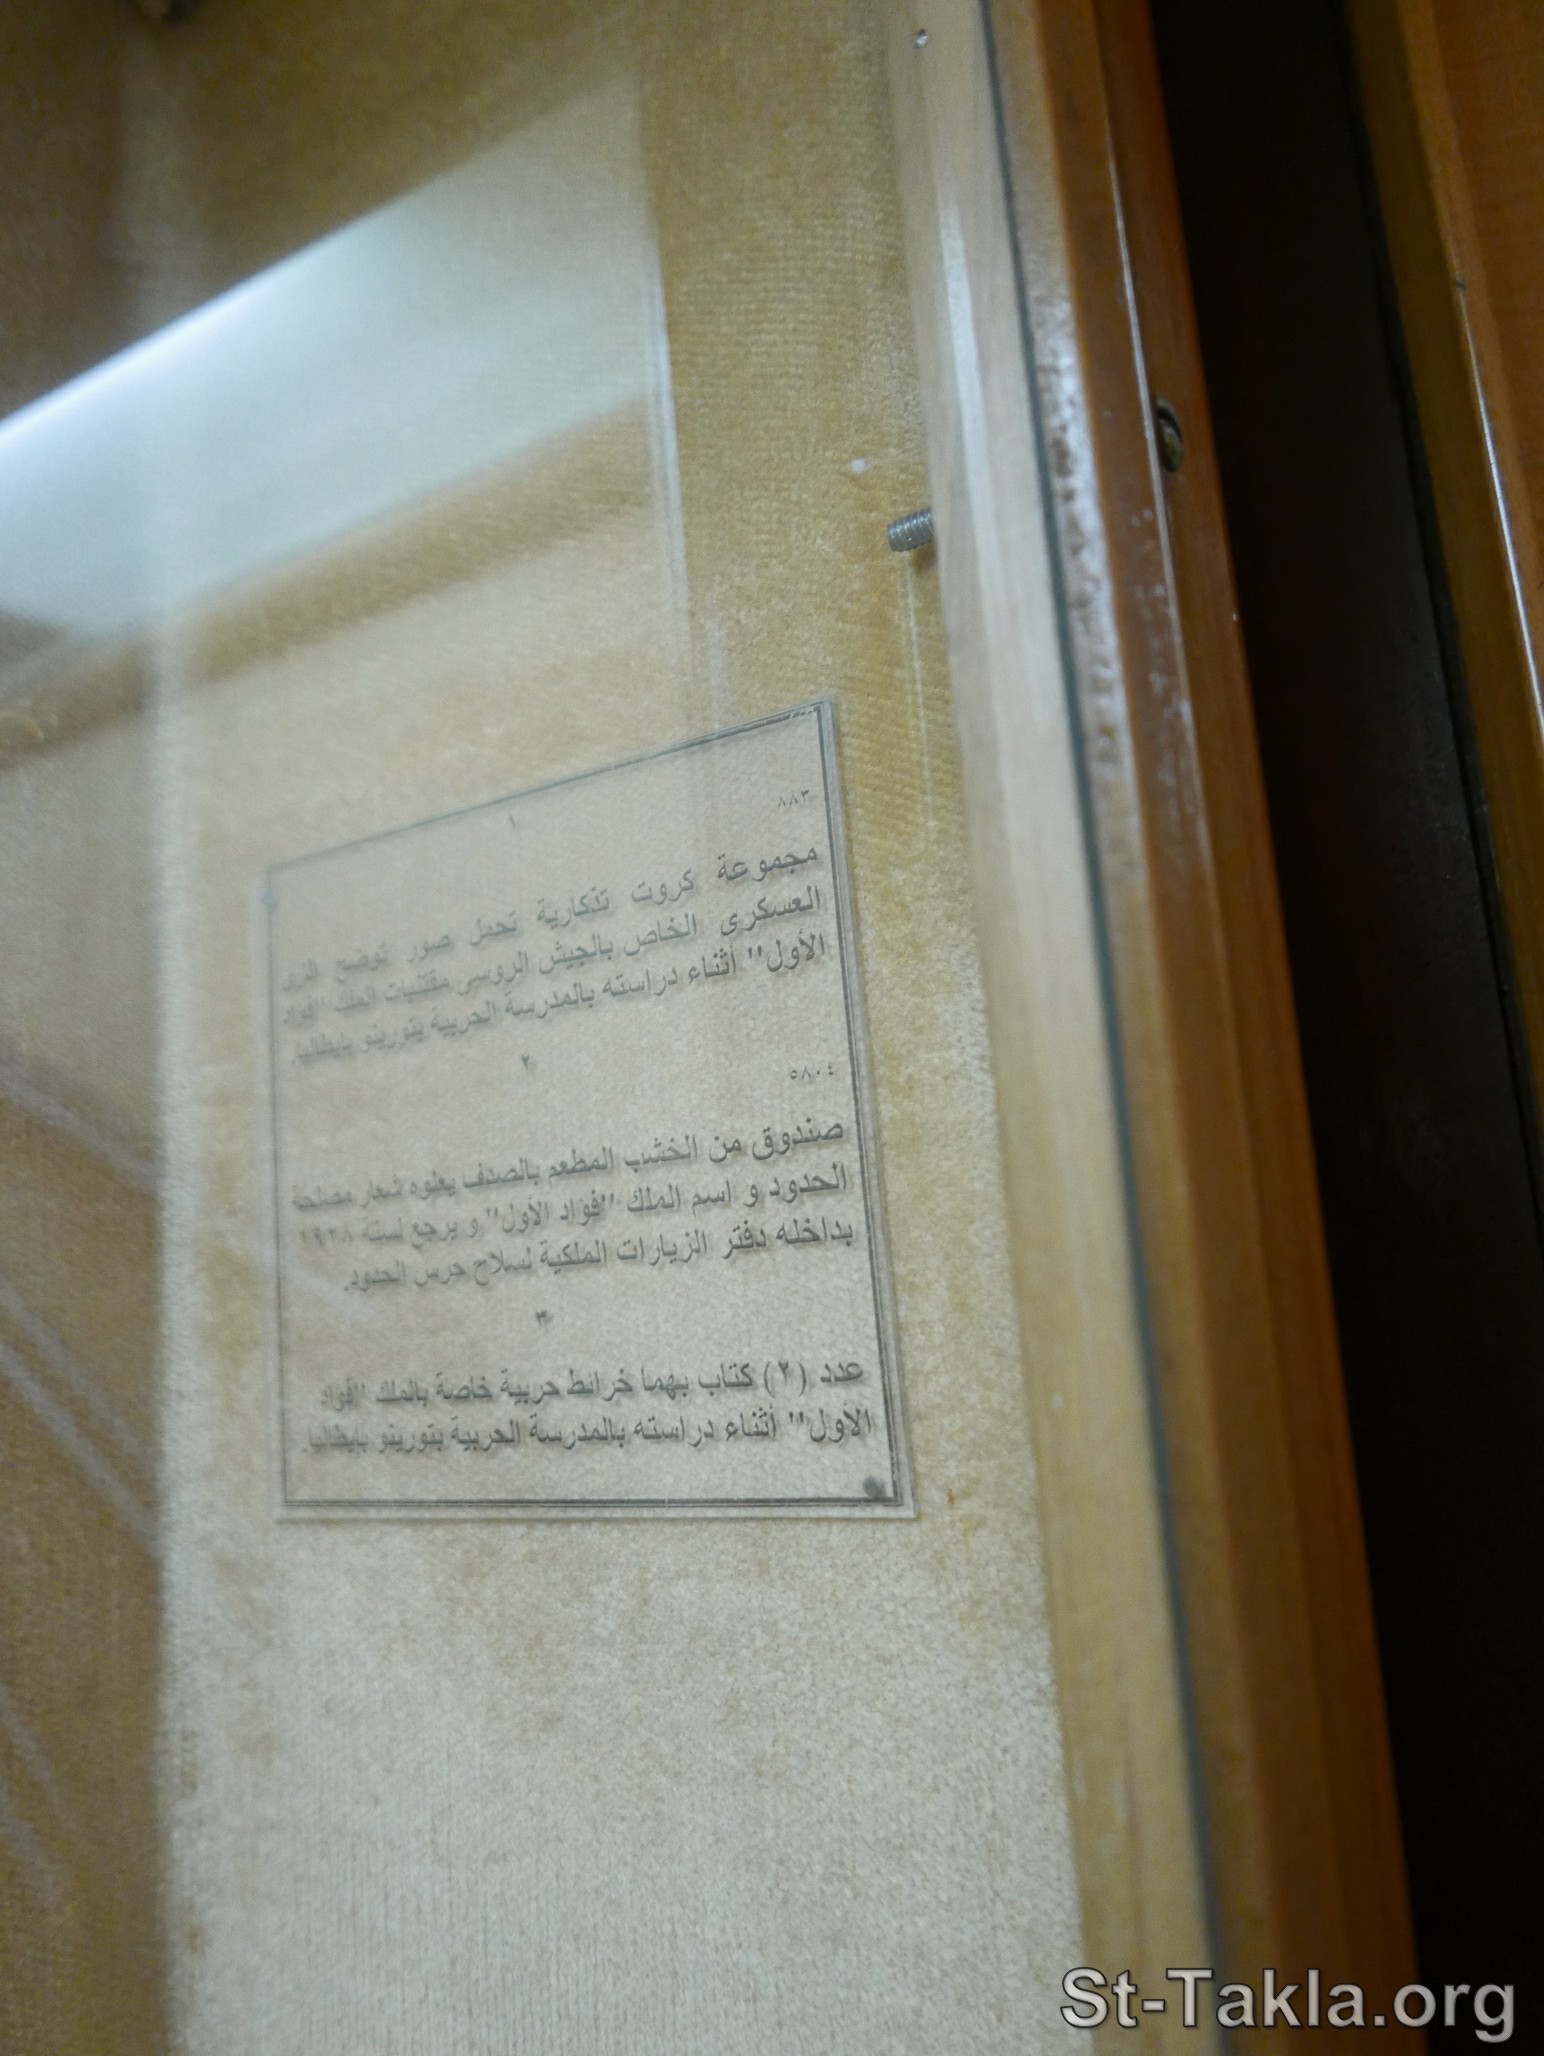 ١
٨٨٣
مجموعة كروت تذكارية تحمل صور توضح الزى
العسكرى الخاص بالجيش الروسى مقتنيات الملك "فؤاد
الأول" أثناء دراسته بالمدرسة الحربية بتورينو بإيطاليا.
٢
٥٨٠٤
صندوق من الخشب المطعم بالصدف يعلوه شعار مصلحة
الحدود و اسم الملك "فؤاد الأول" و يرجع لسنة ١٩٣٨
بداخله دفتر الزيارات الملكية لسلاح حرس الحدود.
٣
عدد (٢) كتاب بهما خرائط حربية خاصة بالملك "فؤاد
الأول" أثناء دراسته بالمدرسة الحربية بتورينو بإيطاليا.
St-Takla.org